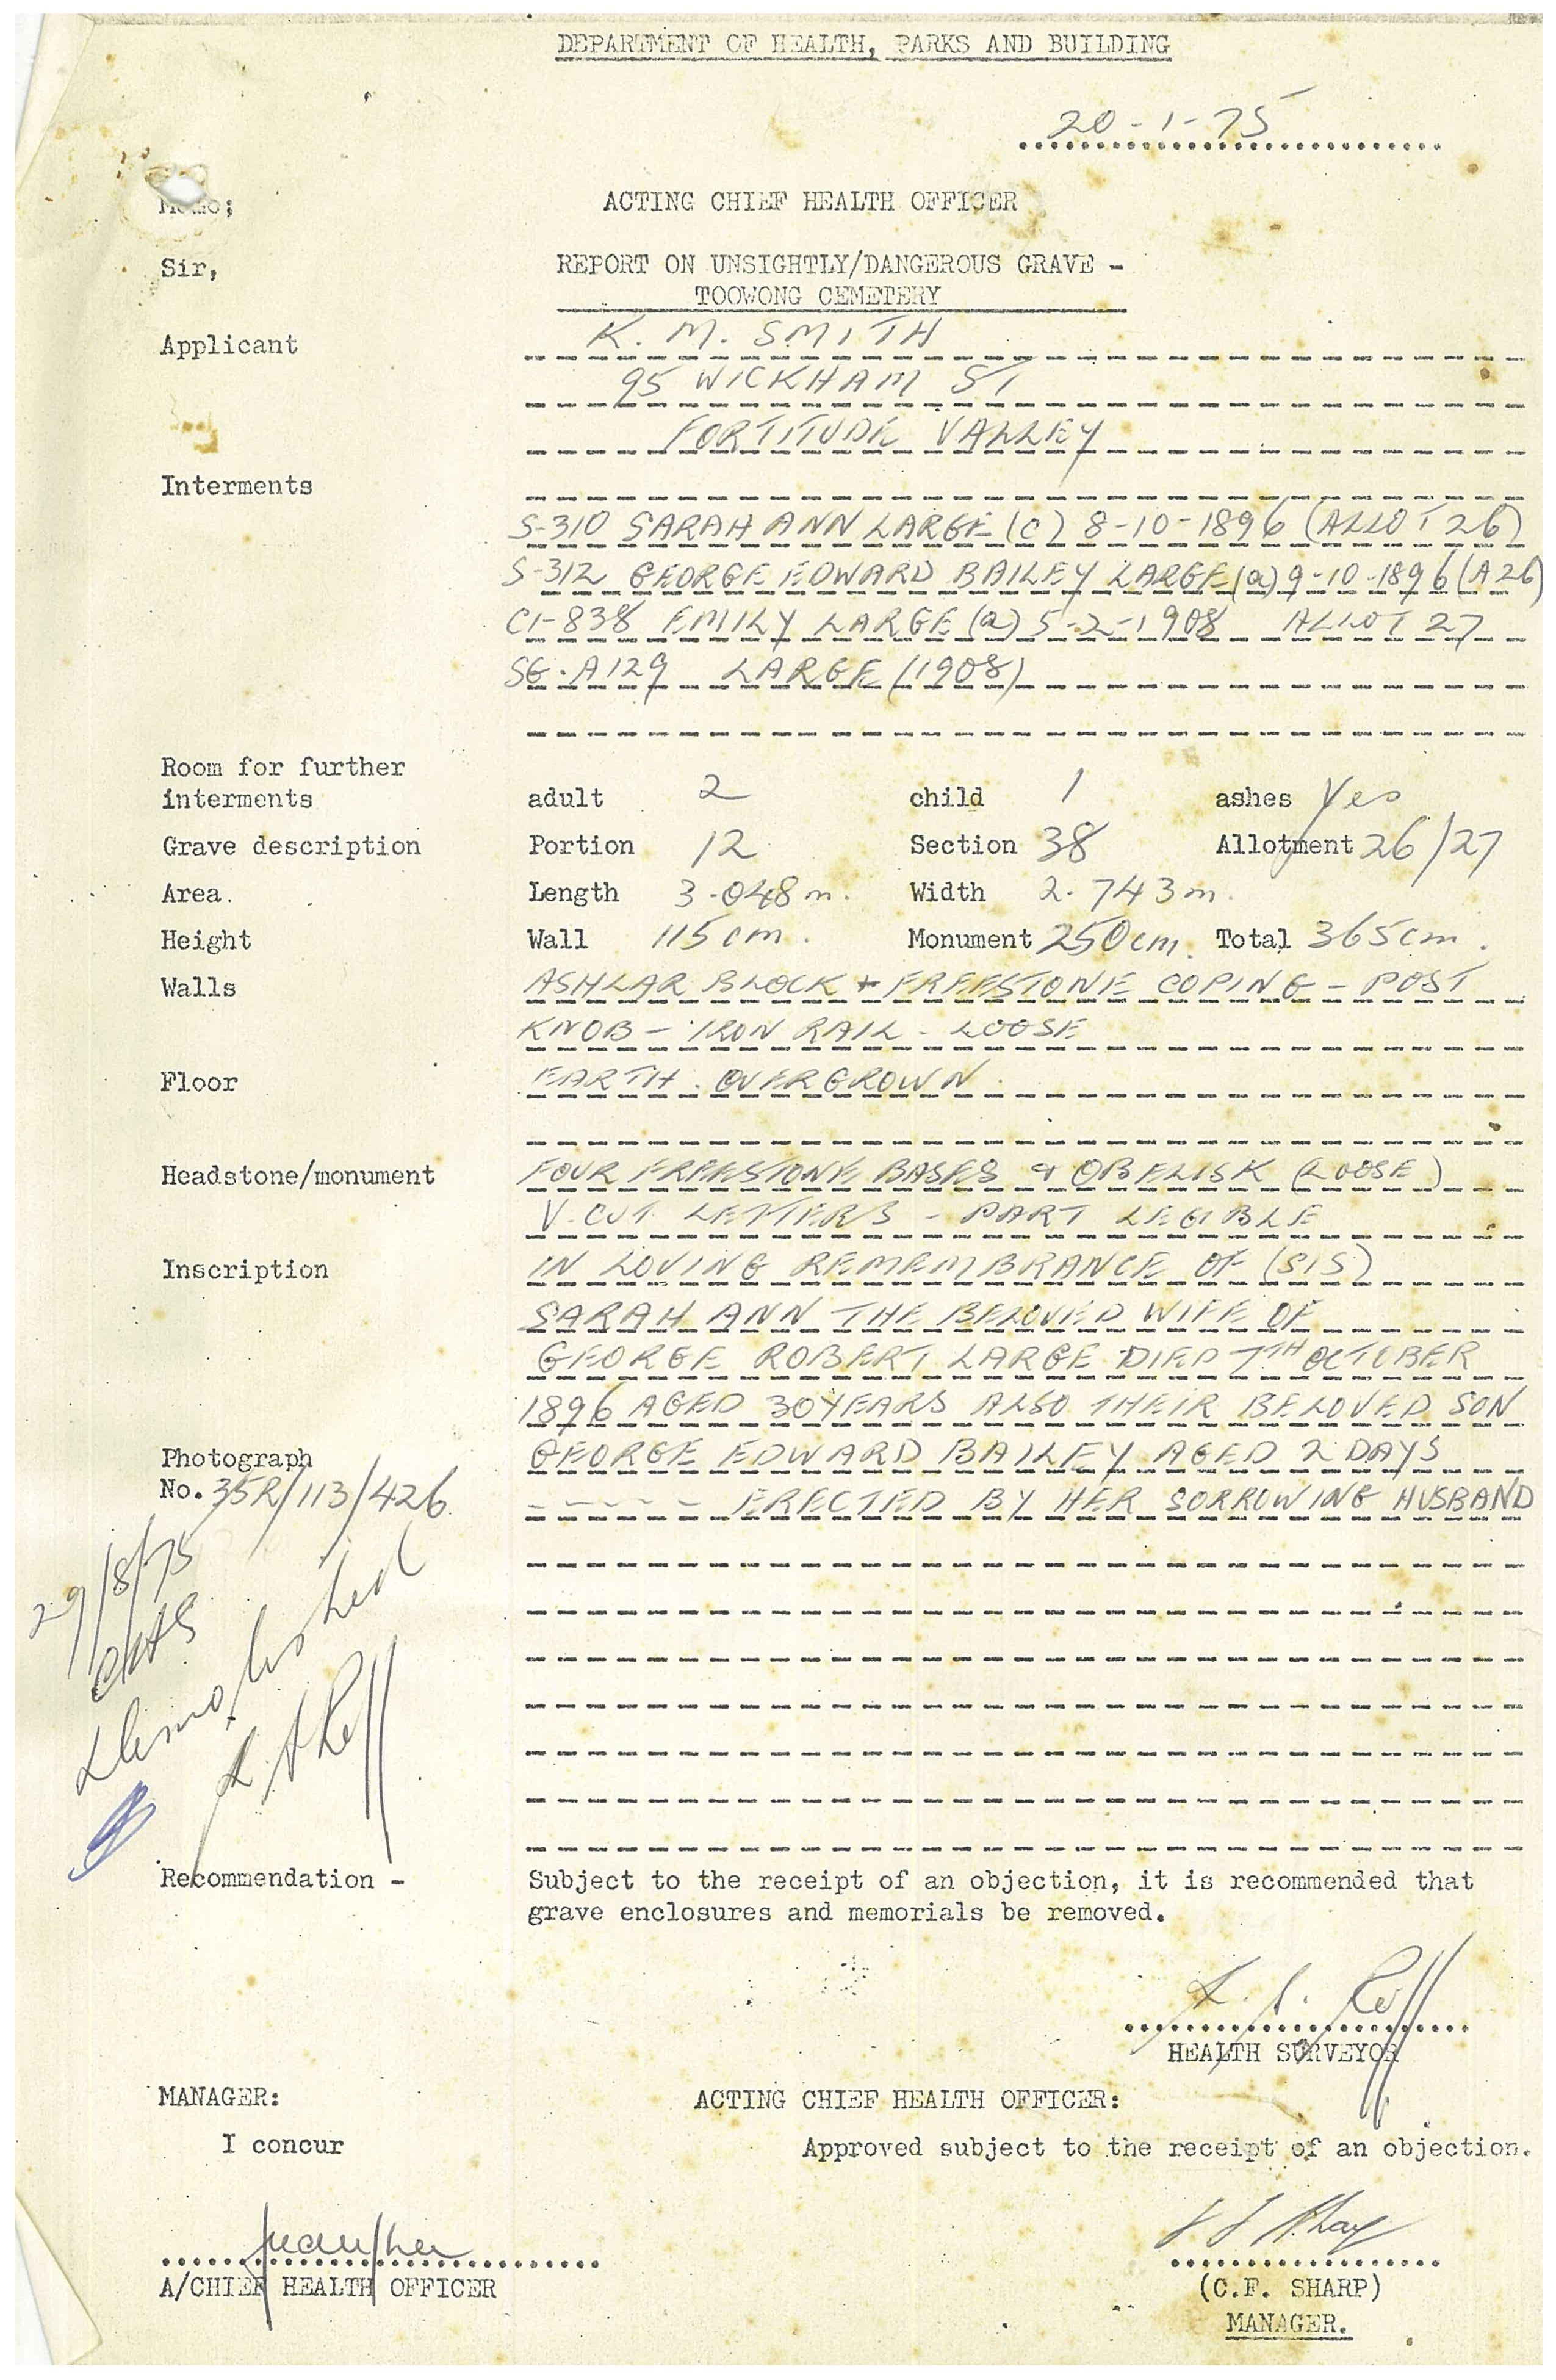 DEPARTMENT OF HEALTH, PARKS AND BUILDING
20-1-75
Memo; ACTING CHIEF HEALTH OFFICER
Sir, REPORT ON UNSIGHTLY/DANGEROUS GRAVE -
TOOWONG CEMETERY
Applicant K. M. SMITH
95 WICKHAM ST
FORTITUDE VALLEY
Interments
S-310 SARAH ANN LARGE (c) 8-10-1896 (ALLOT 26)
S-312 GEORGE EDWARD BAILEY LARGE (a) 9-10-1896 (A26)
C1-838 EMILY LARGE (a) 5-2-1908 ALLOT 27
SG. A129 LARGE (1908)
Room for further
interments adult 2 child 1 ashes Yes
Grave description Portion 12 Section 38 Allotment 26/27
Area. Length 3.048 m. Width 2.743 m.
Height Wall 115 cm. Monument 250 cm. Total 365 cm.
Walls ASHLAR BLOCK + FREESTONE COPING - POST
KNOB - IRON RAIL - LOOSE
Floor EARTH. OVERGROWN.
Headstone/monument FOUR FREESTONE BASES & OBELISK (LOOSE)
V. CUT LETTERS - PART LEGIBLE
Inscription IN LOVING REMEMBRANCE OF (SIS)
SARAH ANN THE BELOVED WIFE OF
GEORGE ROBERT LARGE DIED 7TH OCTOBER
1896 AGED 30 YEARS ALSO THEIR BELOVED SON
Photograph GEORGE EDWARD BAILEY AGED 2 DAYS
No. 35R/113/426 ----- ERECTED BY HER SORROWING HUSBAND
29/8/75
Demolished
Recommendation - Subject to the receipt of an objection, it is recommended that
grave enclosures and memorials be removed.
HEALTH SURVEYOR
MANAGER: ACTING CHIEF HEALTH OFFICER:
I concur Approved subject to the receipt of an objection.
A/CHIEF HEALTH OFFICER (C.F. SHARP)
MANAGER.